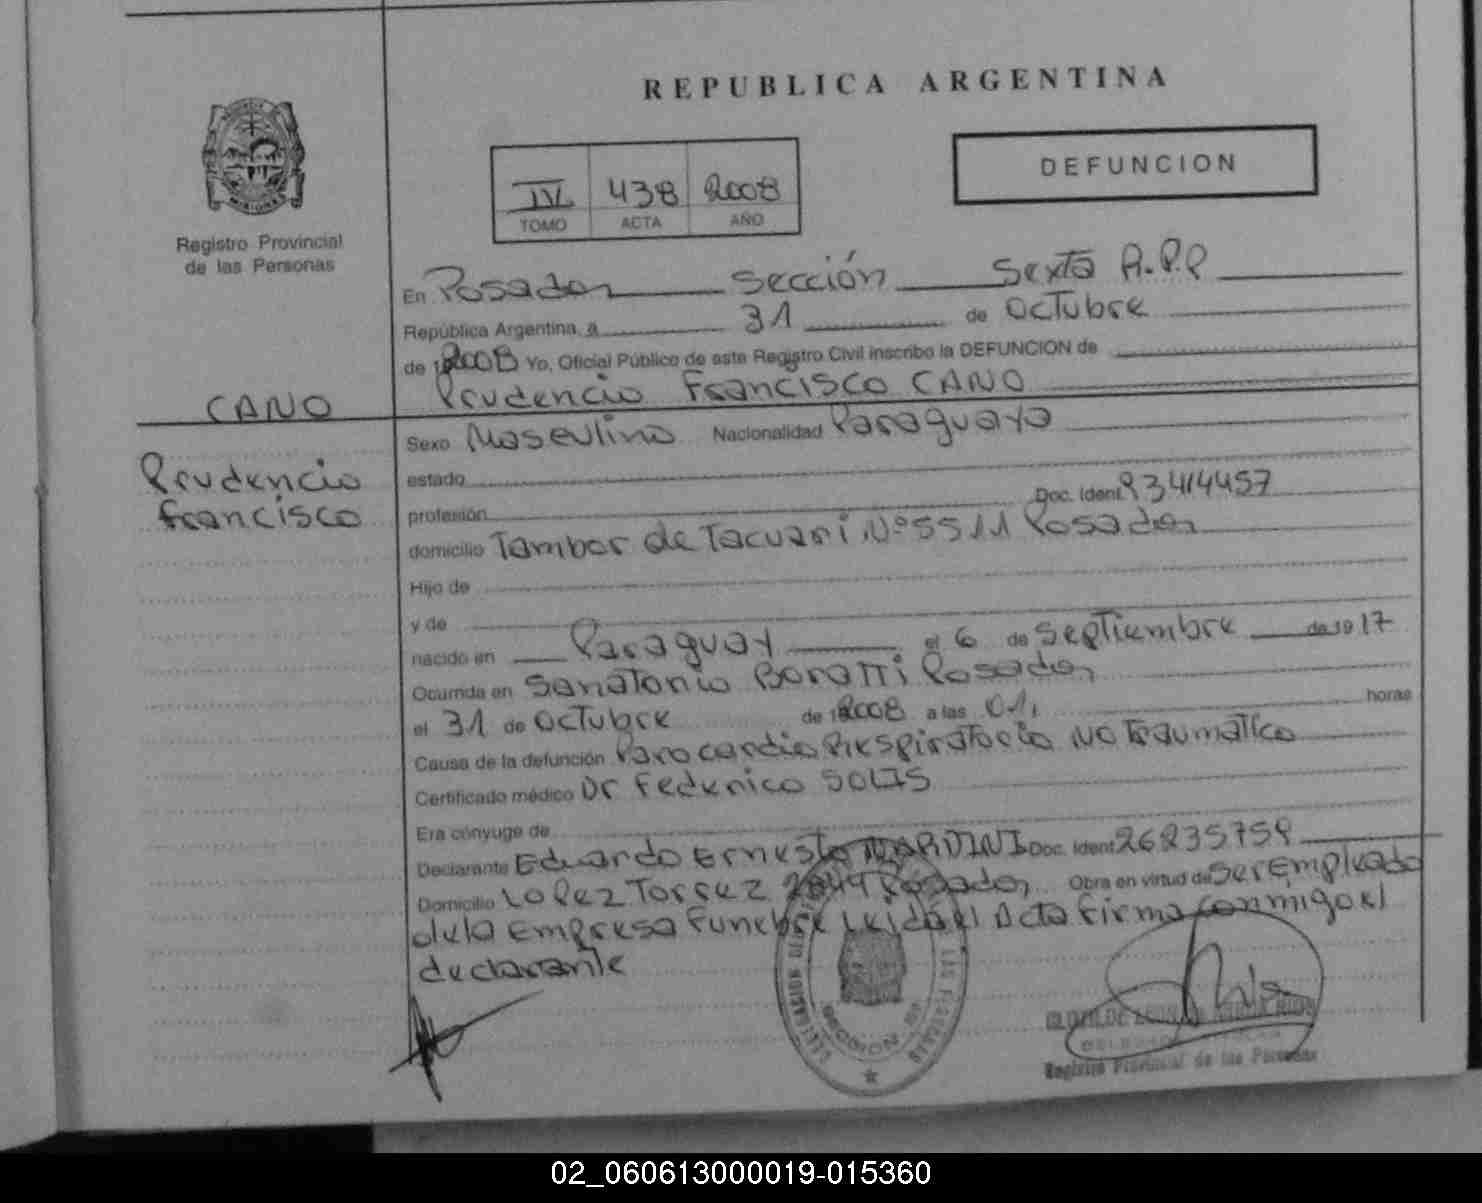 REPUBLICA ARGENTINA
DEFUNCION
IV 438 2008
TOMO ACTA AÑO
MISIONES
Registro Provincial
de las Personas
En Posadas Sección Sexta A.P.P
República Argentina, a 31 de Octubre
de 2008 Yo, Oficial Público de este Registro Civil inscribo la DEFUNCION de
Prudencio Francisco CANO
CANO
Prudencio
Francisco
Sexo Masculino Nacionalidad Paraguaya
estado
profesión Doc. Ident 93414457
domicilio Tambor de Tacuari Nº 5511 Posadas
Hijo de
y de
nacido en Paraguay el 6 de Septiembre de 19 17
Ocurrida en Sanatorio Boratti Posadas
el 31 de Octubre de 2008 a las 01, horas
Causa de la defunción Paro cardio Respiratorio No Traumatico
Certificado médico Dr Federico SOLIS
Era cónyuge de
Declarante Eduardo Ernesto NARDINI Doc. Ident 26835759
Domicilio Lopez Torrez 2849 Posadas Obra en virtud de Ser Empleado
de la Empresa Funebre Leida el Acta firma conmigo el
declarante
DELEGACION DE LAS PERSONAS
SECCION
Registro Provincial de las Personas
02_060613000019-015360